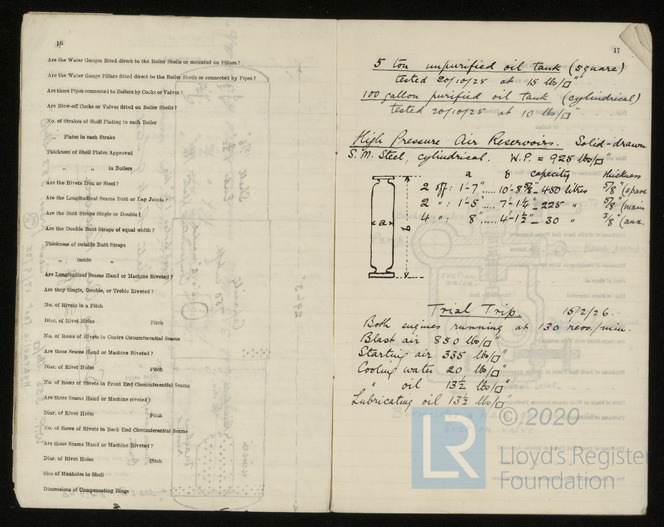 16
Are the Water Gauges fitted direct to the Boiler Shells or mounted on Pillars?
Are the Water Gauge Pillars fitted direct to the Boiler Shells or connected by Pipes?
Are these Pipes connected to Boilers by Cocks or Valves?
Are Blow-off Cocks or Valves fitted on Boiler Shells?
No. of Strakes of Shell Plating in each Boiler
Plates in each Strake
Thickness of Shell Plates Approved
" " in Boilers
Are the Rivets Iron or Steel?
Are the Longitudinal Seams Butt or Lap Joints?
Are the Butt Straps Single or Double?
Are the Double Butt Straps of equal width?
Thickness of outside Butt Straps
" inside "
Are Longitudinal Seams Hand or Machine Riveted?
Are they Single, Double, or Treble Riveted?
No. of Rivets in a Pitch
Diar. of Rivet Holes Pitch
No. of Rows of Rivets in Centre Circumferential Seams
Are these Seams Hand or Machine Riveted?
Diar. of Rivet Holes Pitch
No. of Rows of Rivets in Front End Circumferential Seams
Are these Seams Hand or Machine riveted?
Diar. of Rivet Holes Pitch
No. of Rows of Rivets in Back End Circumferential Seams
Are these Seams Hand or Machine Riveted?
Diar. of Rivet Holes Pitch
Size of Manholes in Shell
Dimensions of Compensating Rings
17
5 ton unpurified oil tank (square)
tested 20/10/25 at 15 lbs/□"
100 gallon purified oil tank (cylindrical)
tested 20/10/25 at 10 lbs/□"
High Pressure Air Reservoirs. Solid-drawn
S.M. Steel, cylindrical. W.P. = 925 lbs/□"
a b capacity thickness
2 off: 1'-7" .... 450 litres 5/8"
2 ": 1'-5" .... 7'-1½" — 225 " 5/8" (main
4 ": 8" .... 4'-1½" — 30 " 3/8" (aux.
a
b
Trial Trip. 15/2/26.
Both engines running at 130 revs/min.
Blast air 850 lbs/□"
Starting air 335 lbs/□"
Cooling water 20 lbs/□"
" oil 13½ lbs/□"
Lubricating oil 13½ lbs/□"
LR
© 2020
Lloyd's Register
Foundation